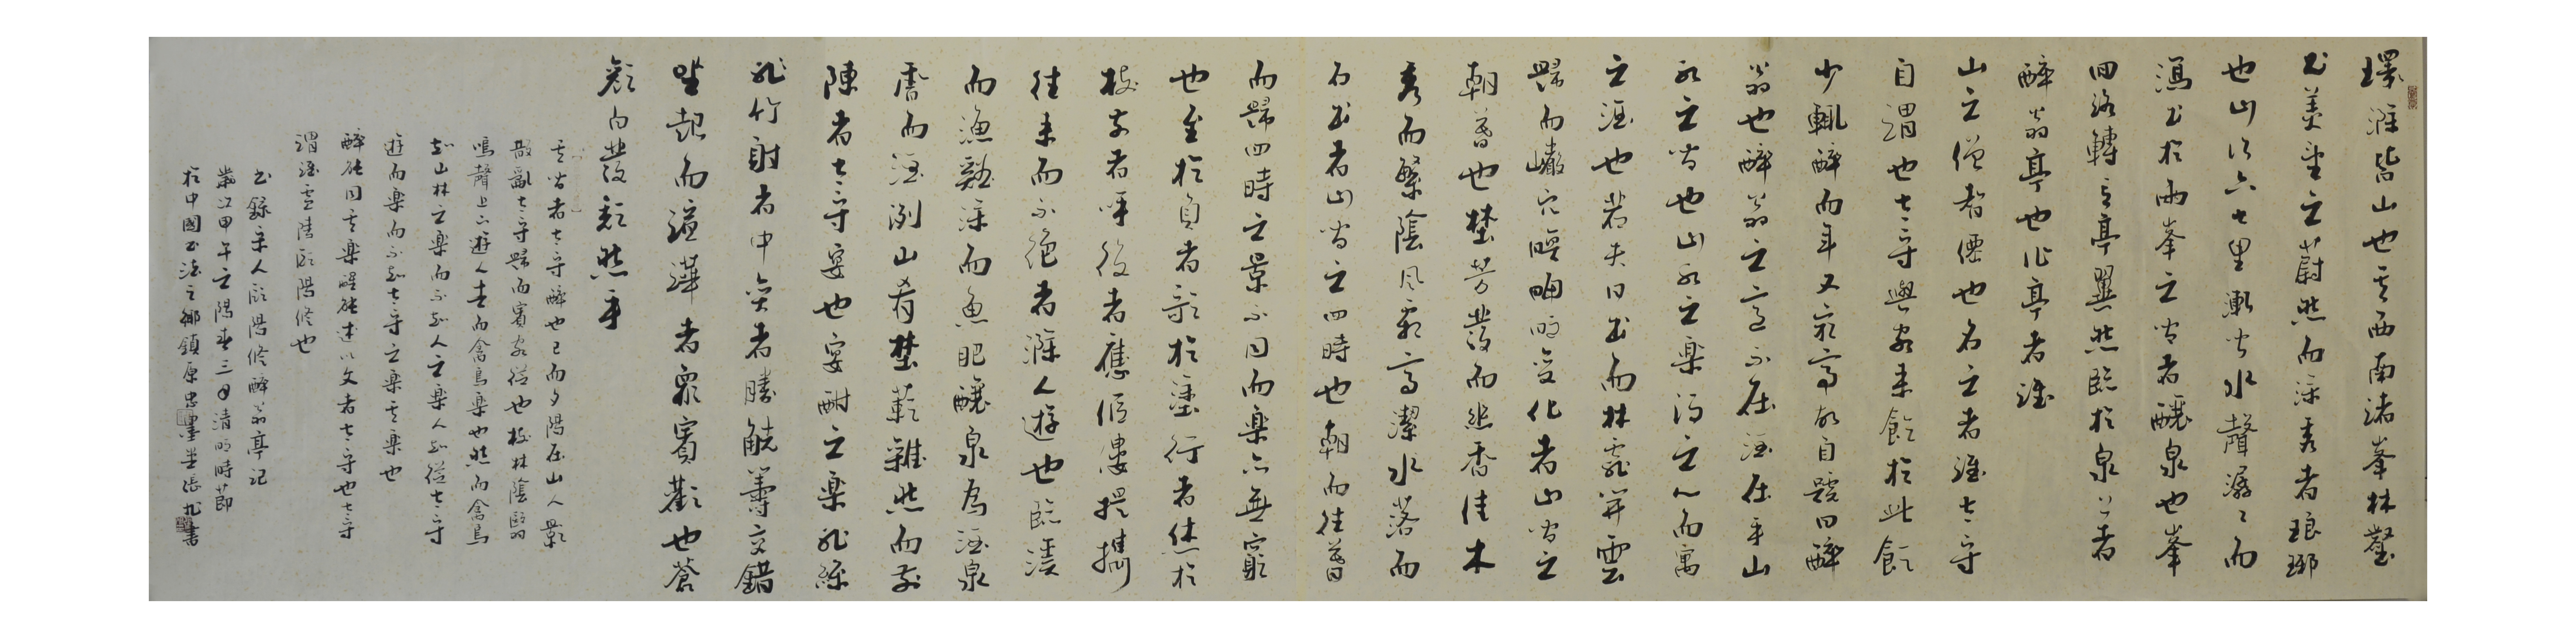 環滁皆山也其西南諸峯林壑
尤美望之蔚然而深秀者琅琊
也山行六七里漸聞水聲潺〻而
瀉出於兩峯之間者釀泉也峯
回路轉有亭翼然臨於泉上者
醉翁亭也作亭者誰
山之僧智僊也名之者誰太守
自謂也太守與客來飲於此飲
少輒醉而年又最高故自號曰醉
翁也醉翁之意不在酒在乎山
水之間也山水之樂得之心而寓
之酒也若夫日出而林霏開雲
歸而巖穴暝晦明變化者山間之
朝暮也埜芳發而幽香佳木
秀而繁陰風霜高潔水落而
石出者山間之四時也朝而往暮
而歸四時之景不同而樂亦無窮
也至於負者歌於塗行者休於
樹前者呼後者應傴僂提攜
往來而不絕者滁人遊也臨溪
而漁谿深而魚肥釀泉為酒泉
香而酒洌山肴埜蔌雜然而前
陳者太守宴也宴酣之樂非絲
非竹射者中奕者勝觥籌交錯
坐起而諠譁者衆賓歡也蒼
顏白髮頹然乎
其間者太守醉也已而夕陽在山人影
散亂太守歸而賓客從也樹林陰翳
鳴聲上下遊人去而禽鳥樂也然而禽鳥
知山林之樂而不知人之樂人知從太守
遊而樂而不知太守之樂其樂也
醉能同其樂醒能述以文者太守也太守
謂誰廬陵歐陽修也
書錄宋人歐陽修醉翁亭記
歲次甲午之陽春三月清明時節
於中國書法之鄉鎮原忠墨堂張書